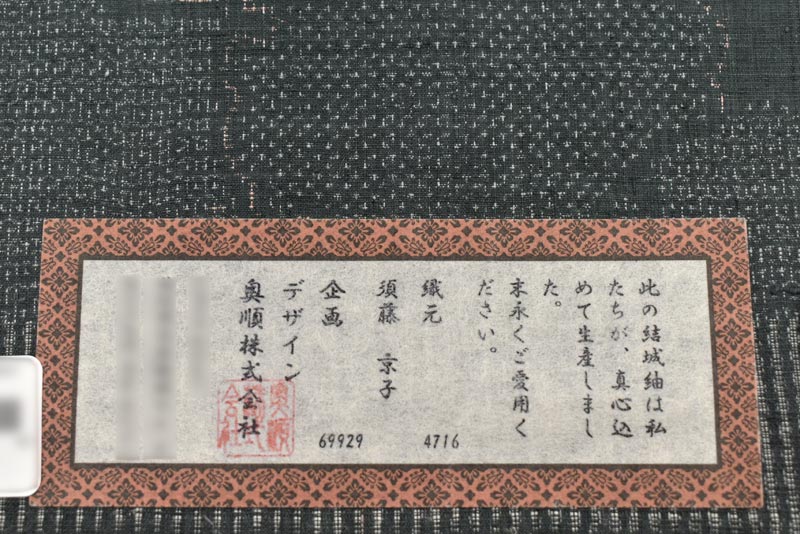 此の結城紬は私
たちが、真心込
めて生産しまし
た。
末永くご愛用く
ださい。
織元
4716
須藤 京子
企画
69929
デザイン
奥順株式会社